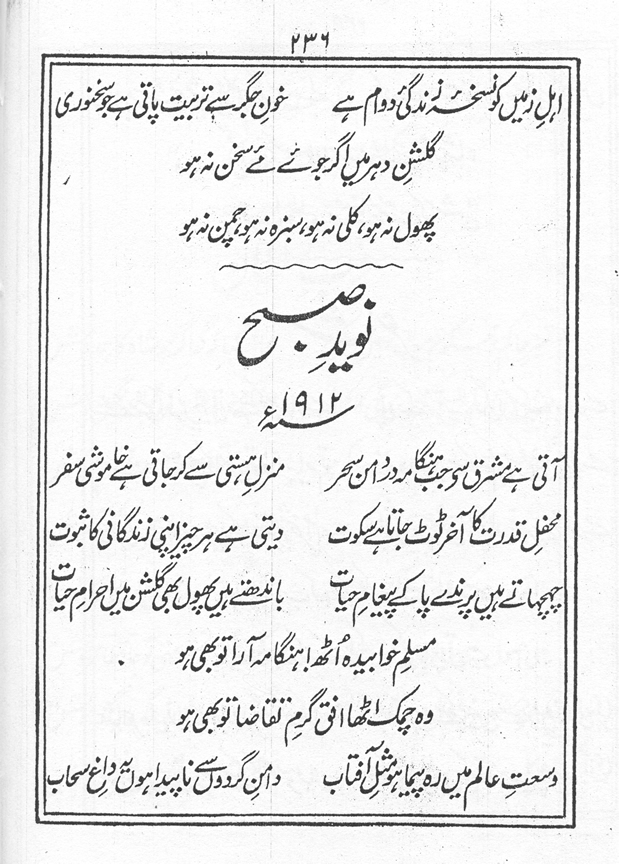 ۲۳۶
اہلِ زمیں کو نسخۂ زندگیٔ دوام ہے خونِ جگر سے تربیت پاتی ہے جو سخنوری
گلشنِ دہر میں اگر جوئے مئے سخن نہ ہو
پھول نہ ہو، کلی نہ ہو، سبزہ نہ ہو، چمن نہ ہو
نویدِ صبح
۱۹۱۲ء
آتی ہے مشرق سے جب ہنگامہ در دامن سحر منزلِ ہستی سے کر جاتی ہے خاموشی سفر
محفلِ قدرت کا آخر ٹوٹ جاتا ہے سکوت دیتی ہے ہر چیز اپنی زندگانی کا ثبوت
چہچہاتے ہیں پرندے پا کے پیغامِ حیات باندھتے ہیں پھول بھی گلشن میں احرامِ حیات
مسلمِ خوابیدہ اُٹھ! ہنگامہ آرا تو بھی ہو
وہ چمک اٹھا افق گرمِ تقاضا تو بھی ہو
وسعتِ عالم میں رہ پیما ہو مثلِ آفتاب دامنِ گردوں سے ناپیدا ہوں یہ داغِ سحاب